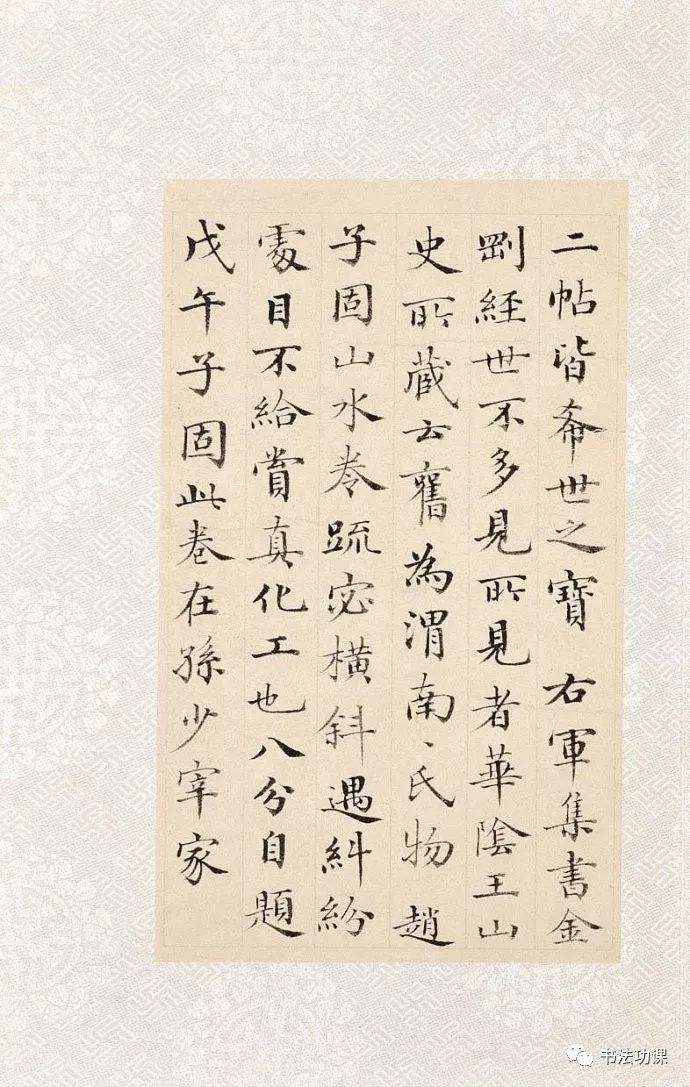 二帖皆希世之寶右軍集書金
剛經世不多見所見者華陰王山
史所藏云舊為渭南、氏物趙
子固山水卷疏密橫斜遇糾紛
處目不給賞真化工也八分自題
戊午子固此卷在孫少宰家
书法功课